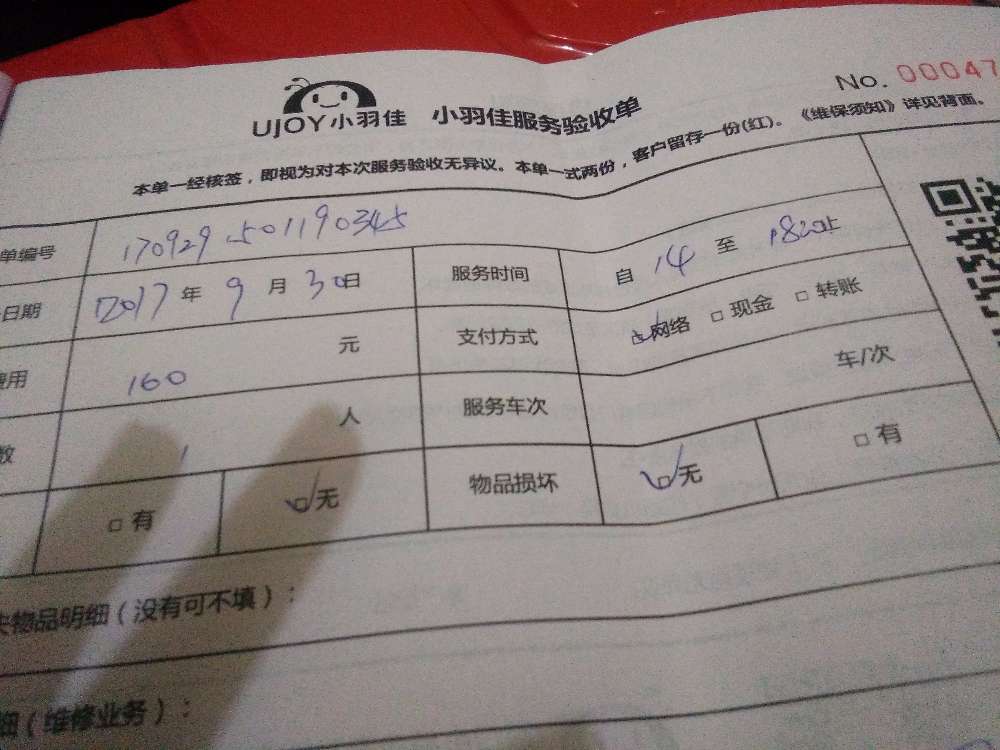 No. 00047
UJOY小羽佳 小羽佳服务验收单
本单一经核签，即视为对本次服务验收无异议。本单一式两份，客户留存一份(红)。《维保须知》详见背面。
单编号 170929 501190345
日期 2017年9月30日 服务时间 自 14 至 18:00止
费用 160 元 支付方式 网络 □ 现金 □ 转账
数 1 人 服务车次 车/次
□ 有 □无 物品损坏 □无 □ 有
失物品明细（没有可不填）：
细（维修业务）：